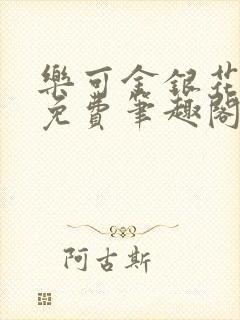 樂可金銀花
免費筆趣閣
阿古斯